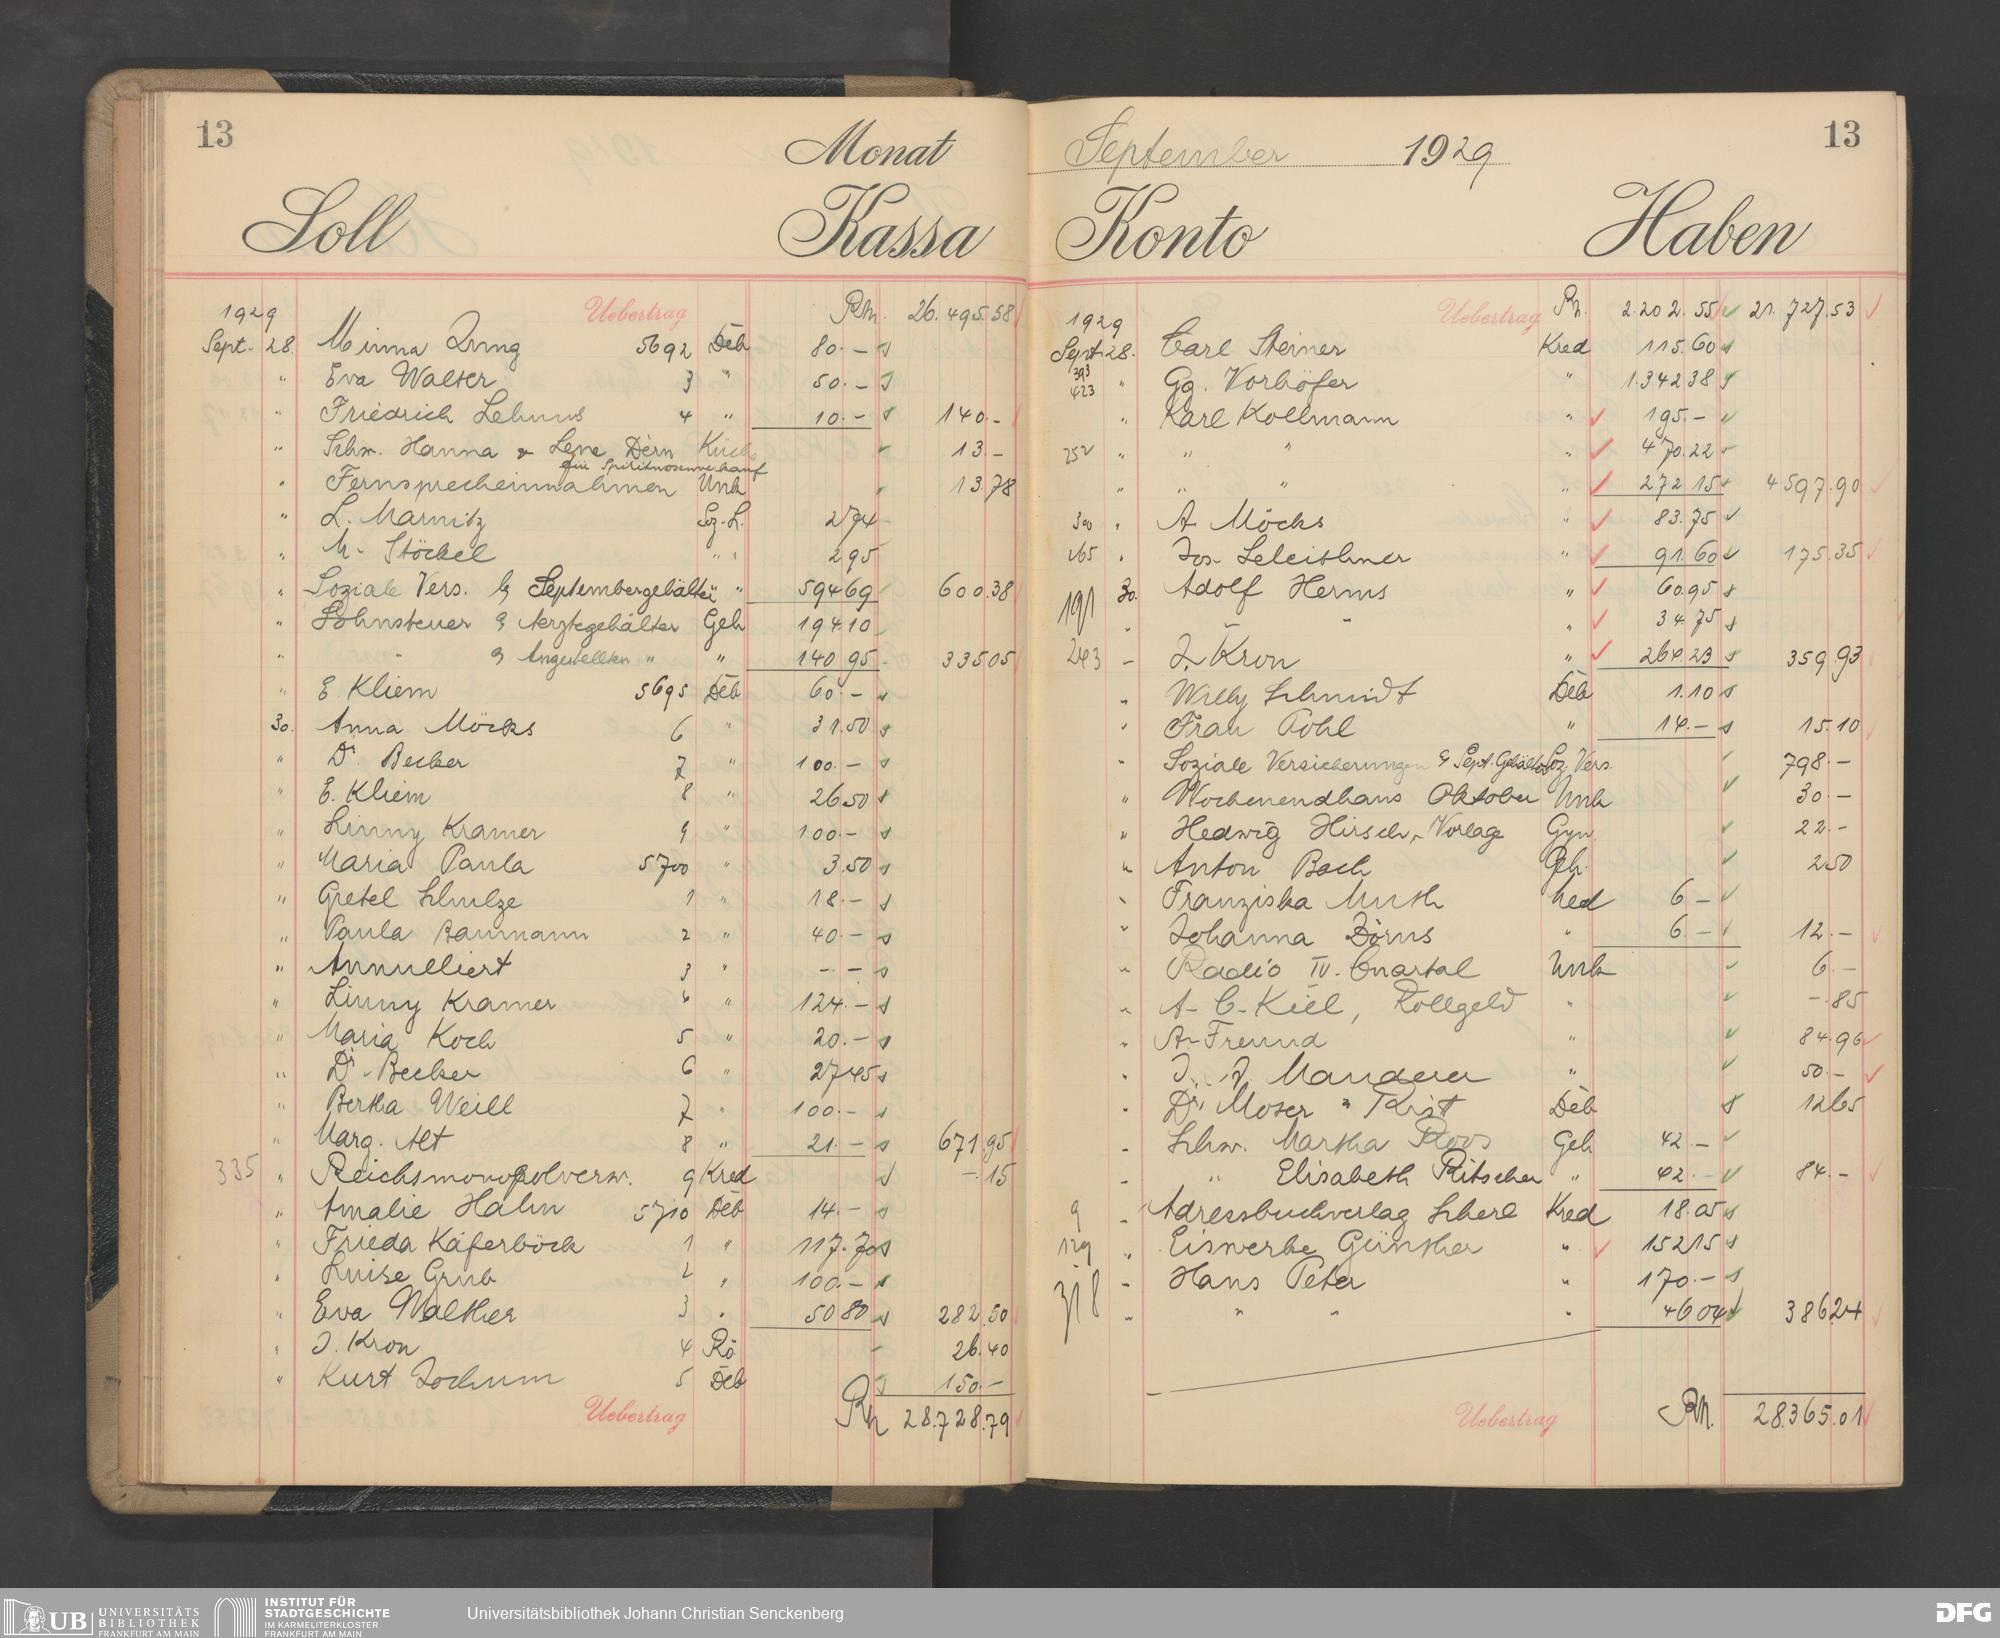 13
Monat
Soll Kassa
1929 Uebertrag Rm. 26.495.58
Sept. 28. Minna Jung 5692 Deb 80.–
" Eva Walter 3 " 50.–
" Friedrich Lehmus 4 " 10.– 140.–
" Schw. Hanna & Lene Dern Küch 13.–
für Spirituosenverkauf
" Fernsprecheinnahmen Unk 13.78
" L. Marnitz Soz.-L. 2.74
" M. Stöckel " " 2.95
" Soziale Vers. Septembergehälter " 594.69 600.38
" Lohnsteuer Aerztegehälter Geh 194.10
" " Angestellten " " 140.95 335.05
" E. Kliem 5695 Deb 60.–
30. Anna Möcks 6 " 31.50
" Dr. Becker 7 " 100.–
" E. Kliem 8 " 26.50
" Linny Kramer 9 " 100.–
" Maria Paula 5700 " 3.50
" Gretel Schulze 1 " 18.–
" Paula Baumann 2 " 40.–
" Annulliert 3 " –.–
" Linny Kramer 4 " 124.–
" Maria Koch 5 " 20.–
" Dr. Becker 6 " 27.45
" Bertha Weill 7 " 100.–
" Marg. Alt 8 " 21.– 671.95
335 " Reichsmonopolverw. 9 Kred –.15
" Amalie Hahn 5710 Deb 14.–
" Frieda Käferböck 1 " 117.70
" Luise Grub 2 " 100.–
" Eva Walther 3 " 50.80 282.50
" J. Kron 4 Rö 26.40
" Kurt Jochum 5 Deb 150.–
Uebertrag Rm 28.728.79
September 1929
13
Konto Haben
1929 Uebertrag Rm. 2.202.55 21.727.53
Sept. 28. Carl Steiner Kred 115.60
393
423 " Gg. Vorhöfer " 1.342.38
" Karl Kollmann " 195.–
252 " " " " 470.22
" " " " 272.15 4597.90
300 " A. Möcks " 83.75
265 " Jos. Leleithner " 91.60 175.35
191 30. Adolf Herms " 60.95
" " " 34.75
243 – J. Kron " 264.23 359.93
" Willy Schmidt Deb 1.10
" Frau Pohl " 14.– 15.10
" Soziale Versicherungen Sept. Gehälter Soz. Vers. 798.–
" Wochenendhaus Oktober Unk 30.–
" Hedwig Hirsch, Vorlage Gyn. 22.–
" Anton Bach Geh. 2.50
" Franziska Muth 6.–
" Johanna Dörns " 6.– 12.–
" Radio IV. Quartal Unk 6.–
" A. C. Kiel, Rollgeld " –.85
" A. Freund " 84.96
" " 50.–
" Dr. Moser Krist Deb 12.65
– Schw. Martha Roos Geh 42.–
– " Elisabeth Ritscher " 42.– 84.–
9 – Adressbuchverlag Scherl Kred 18.05
129 " Eiswerke Günther " 152.15
318 " Hans Peter " 170.–
" " " " 46.04 386.24
Uebertrag Rm. 28.365.01
UB UNIVERSITÄTS
BIBLIOTHEK
FRANKFURT AM MAIN
INSTITUT FÜR
STADTGESCHICHTE
IM KARMELITERKLOSTER
FRANKFURT AM MAIN
Universitätsbibliothek Johann Christian Senckenberg
DFG